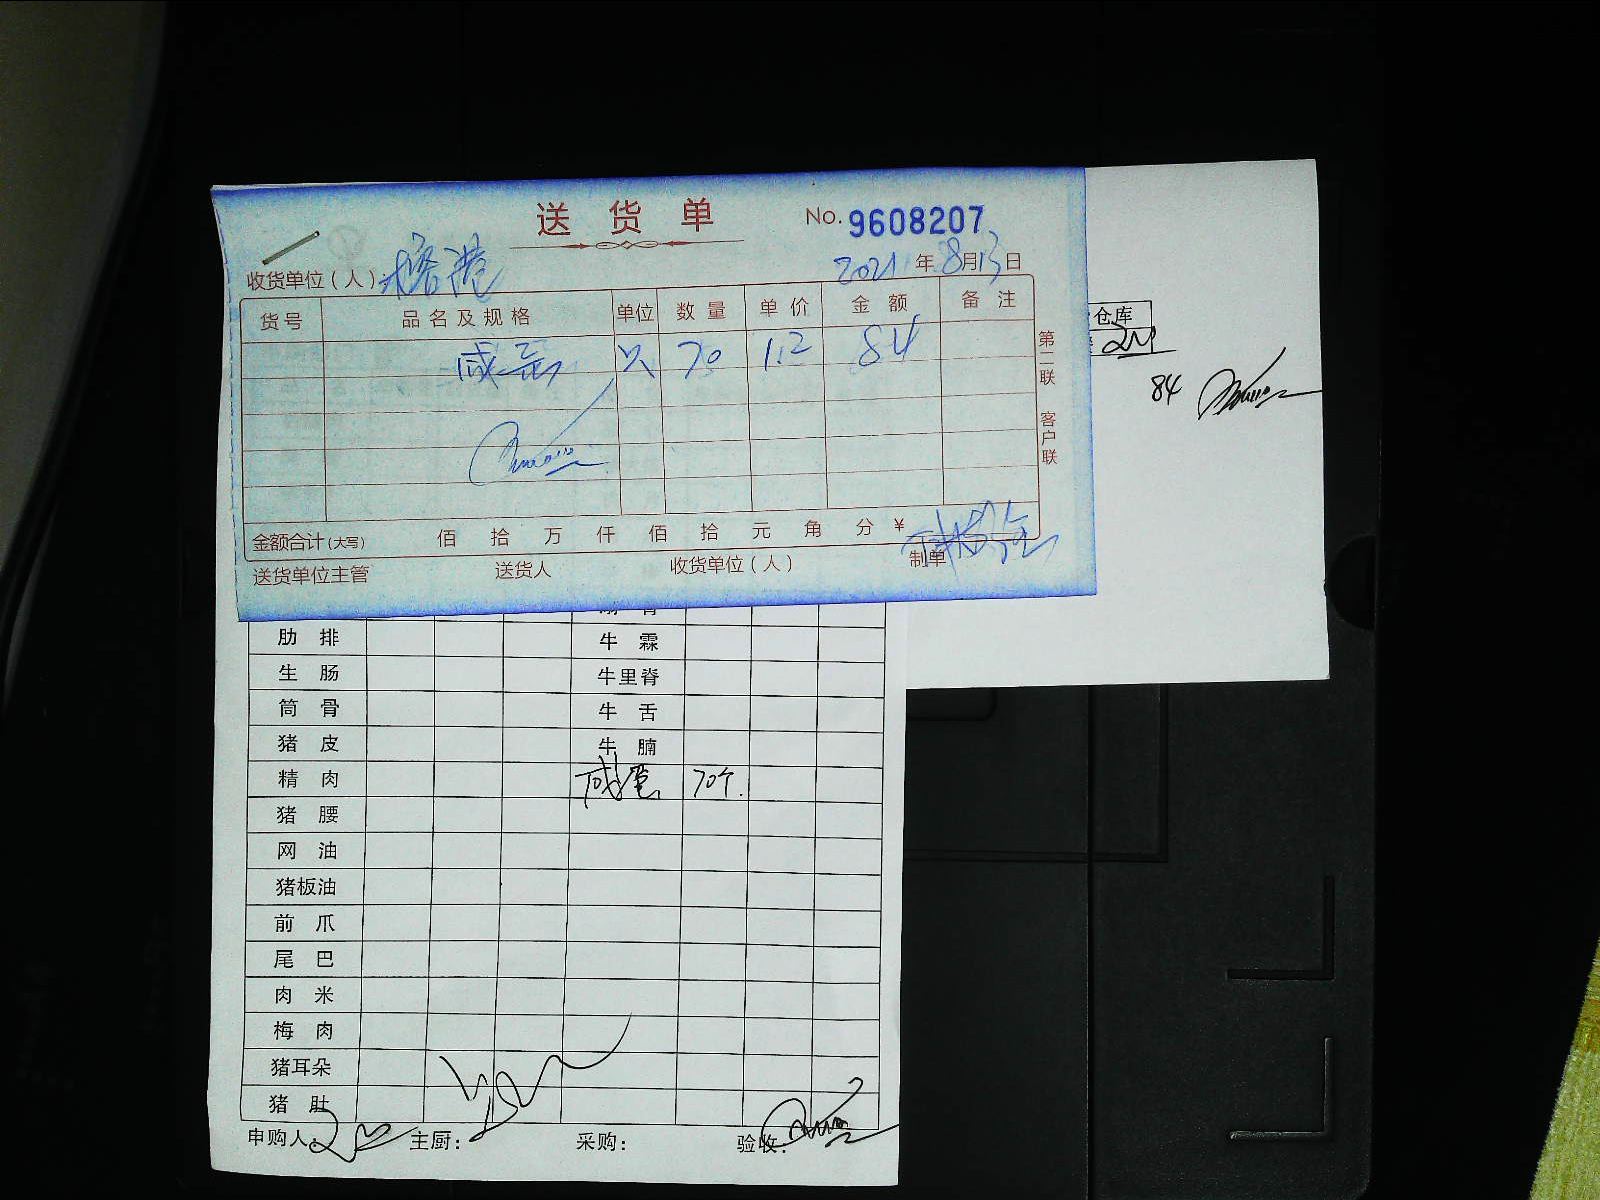 送货单 No. 9608207
收货单位(人) 2021年8月13日
货号 品名及规格 单位 数量 单价 金额 备注
咸蛋 只 70 1.2 84
第二联 客户联
金额合计(大写) 佰 拾 万 仟 佰 拾 元 角 分 ¥
送货单位主管 送货人 收货单位(人) 制单
仓库
84
肋排 牛霖
生肠 牛里脊
筒骨 牛舌
猪皮 牛腩
精肉 咸蛋 70个.
猪腰
网油
猪板油
前爪
尾巴
肉米
梅肉
猪耳朵
猪肚
申购人: 主厨: 采购: 验收: